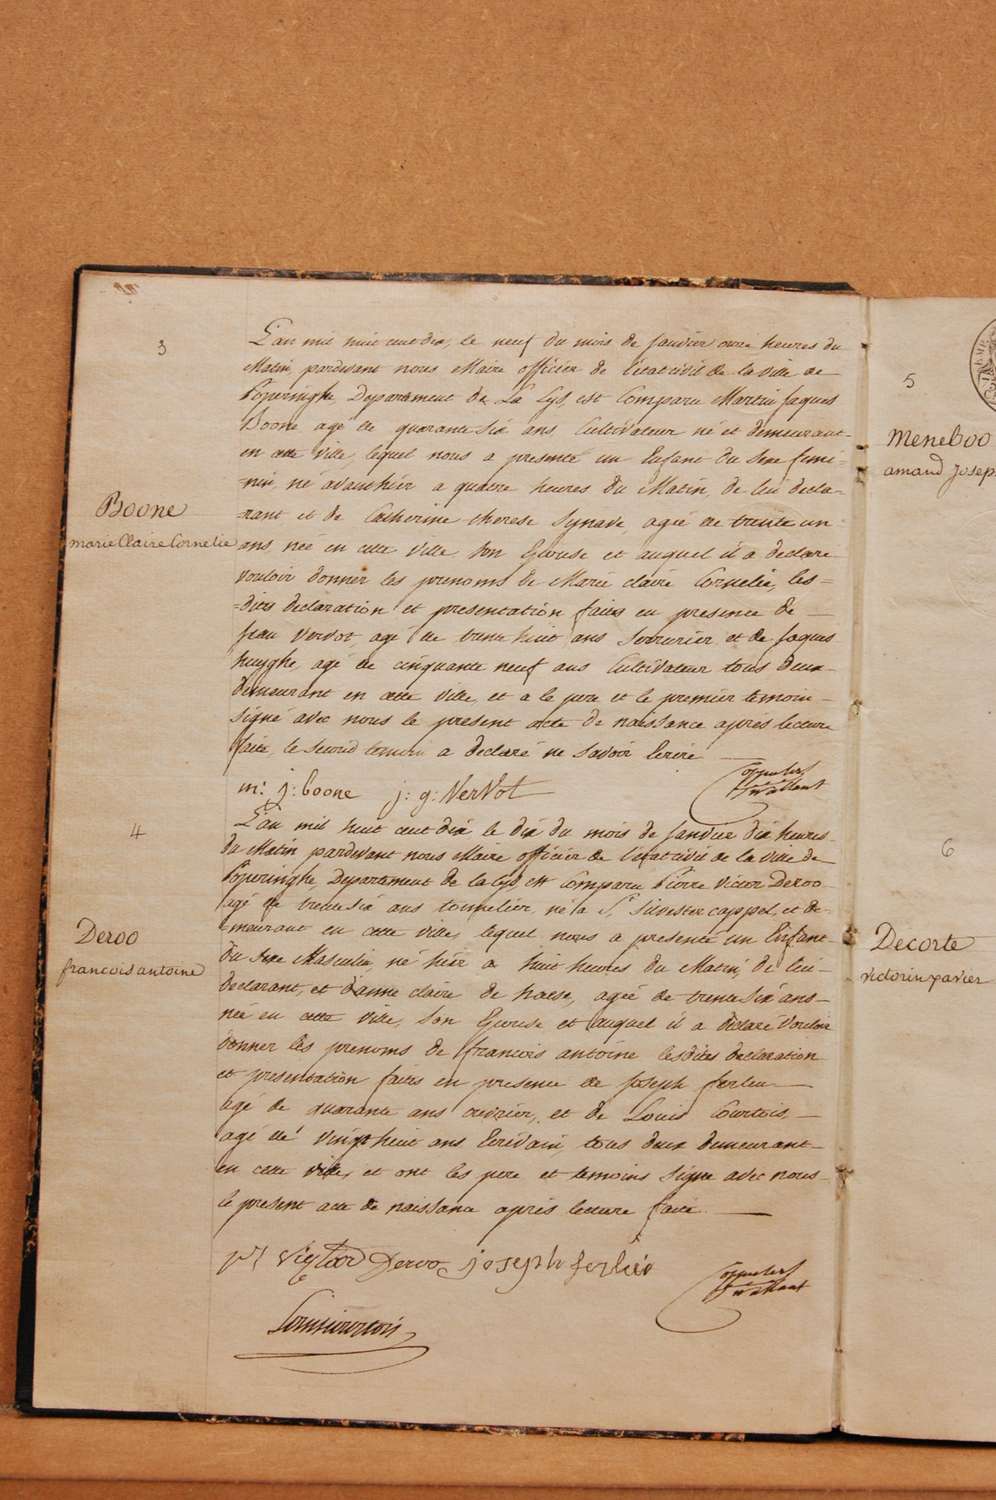 3
L'an mil huit cent dix, le neuf du mois de Janvier onze heures du
Matin, pardevant nous Maire officier de l'état civil de la ville de
Poperinghe Departement de La Lys, est Comparu Martin Jaques
Boone agé de quarante six ans Cultivateur né et demeurant
en cette ville, lequel nous a presenté un Enfant du sexe femi-
-nin, né avanthier a quatre heures du Matin, de lui decla-
-rant et de Catherine therese Synave, agée de trente un
Boone
marie Claire Cornelie
ans, née en cette ville, son Epouse et auquel il a declaré
vouloir donner les prenoms de Marie claire Cornelie, les-
-dites declaration et presentation faites en presence de
Jean Vervot, agé de trente huit ans Serrurier et de Jaques
huyghe, agé de cinquante neuf ans Cultivateur tous deux
demeurant en cette ville, et a le pere et le premier temoin
signé avec nous le present acte de naissance apres lecture
faite, le second temoin a declaré ne savoir Ecrire
m: j: boone j: g: VerVot
4
L'an mil huit cent dix le dix du mois de Janvier dix heures
du Matin pardevant nous Maire officier de l'état civil de la ville de
Poperinghe, Departement de la Lys, est Comparu Pierre Victor Deroo
agé de trente six ans tonnelier, né a St. Silvester cappel, et de-
-meurant en cette ville, lequel nous a presenté un Enfant
Deroo
francois antoine
du sexe Masculin, né hier a huit heures du Matin, de lui
declarant, et d'anne claire de haese, agée de trente six ans
née en cette ville, son Epouse et auquel il a declaré vouloir
donner les prenoms de francois antoine lesdites declaration
et presentation faites en presence de Joseph ferleu
agé de quarante ans ouvrier, et de Louis Courtois
agé de vingt huit ans Ecrivain, tous deux demeurant
en cette ville, et ont les pere et temoins signé avec nous
le present acte de naissance après lecture faite.
Victoor Deroo joseph ferlue
Louis Courtois
5
Meneboo
amand Josep
6
Decorte
victorin xavier